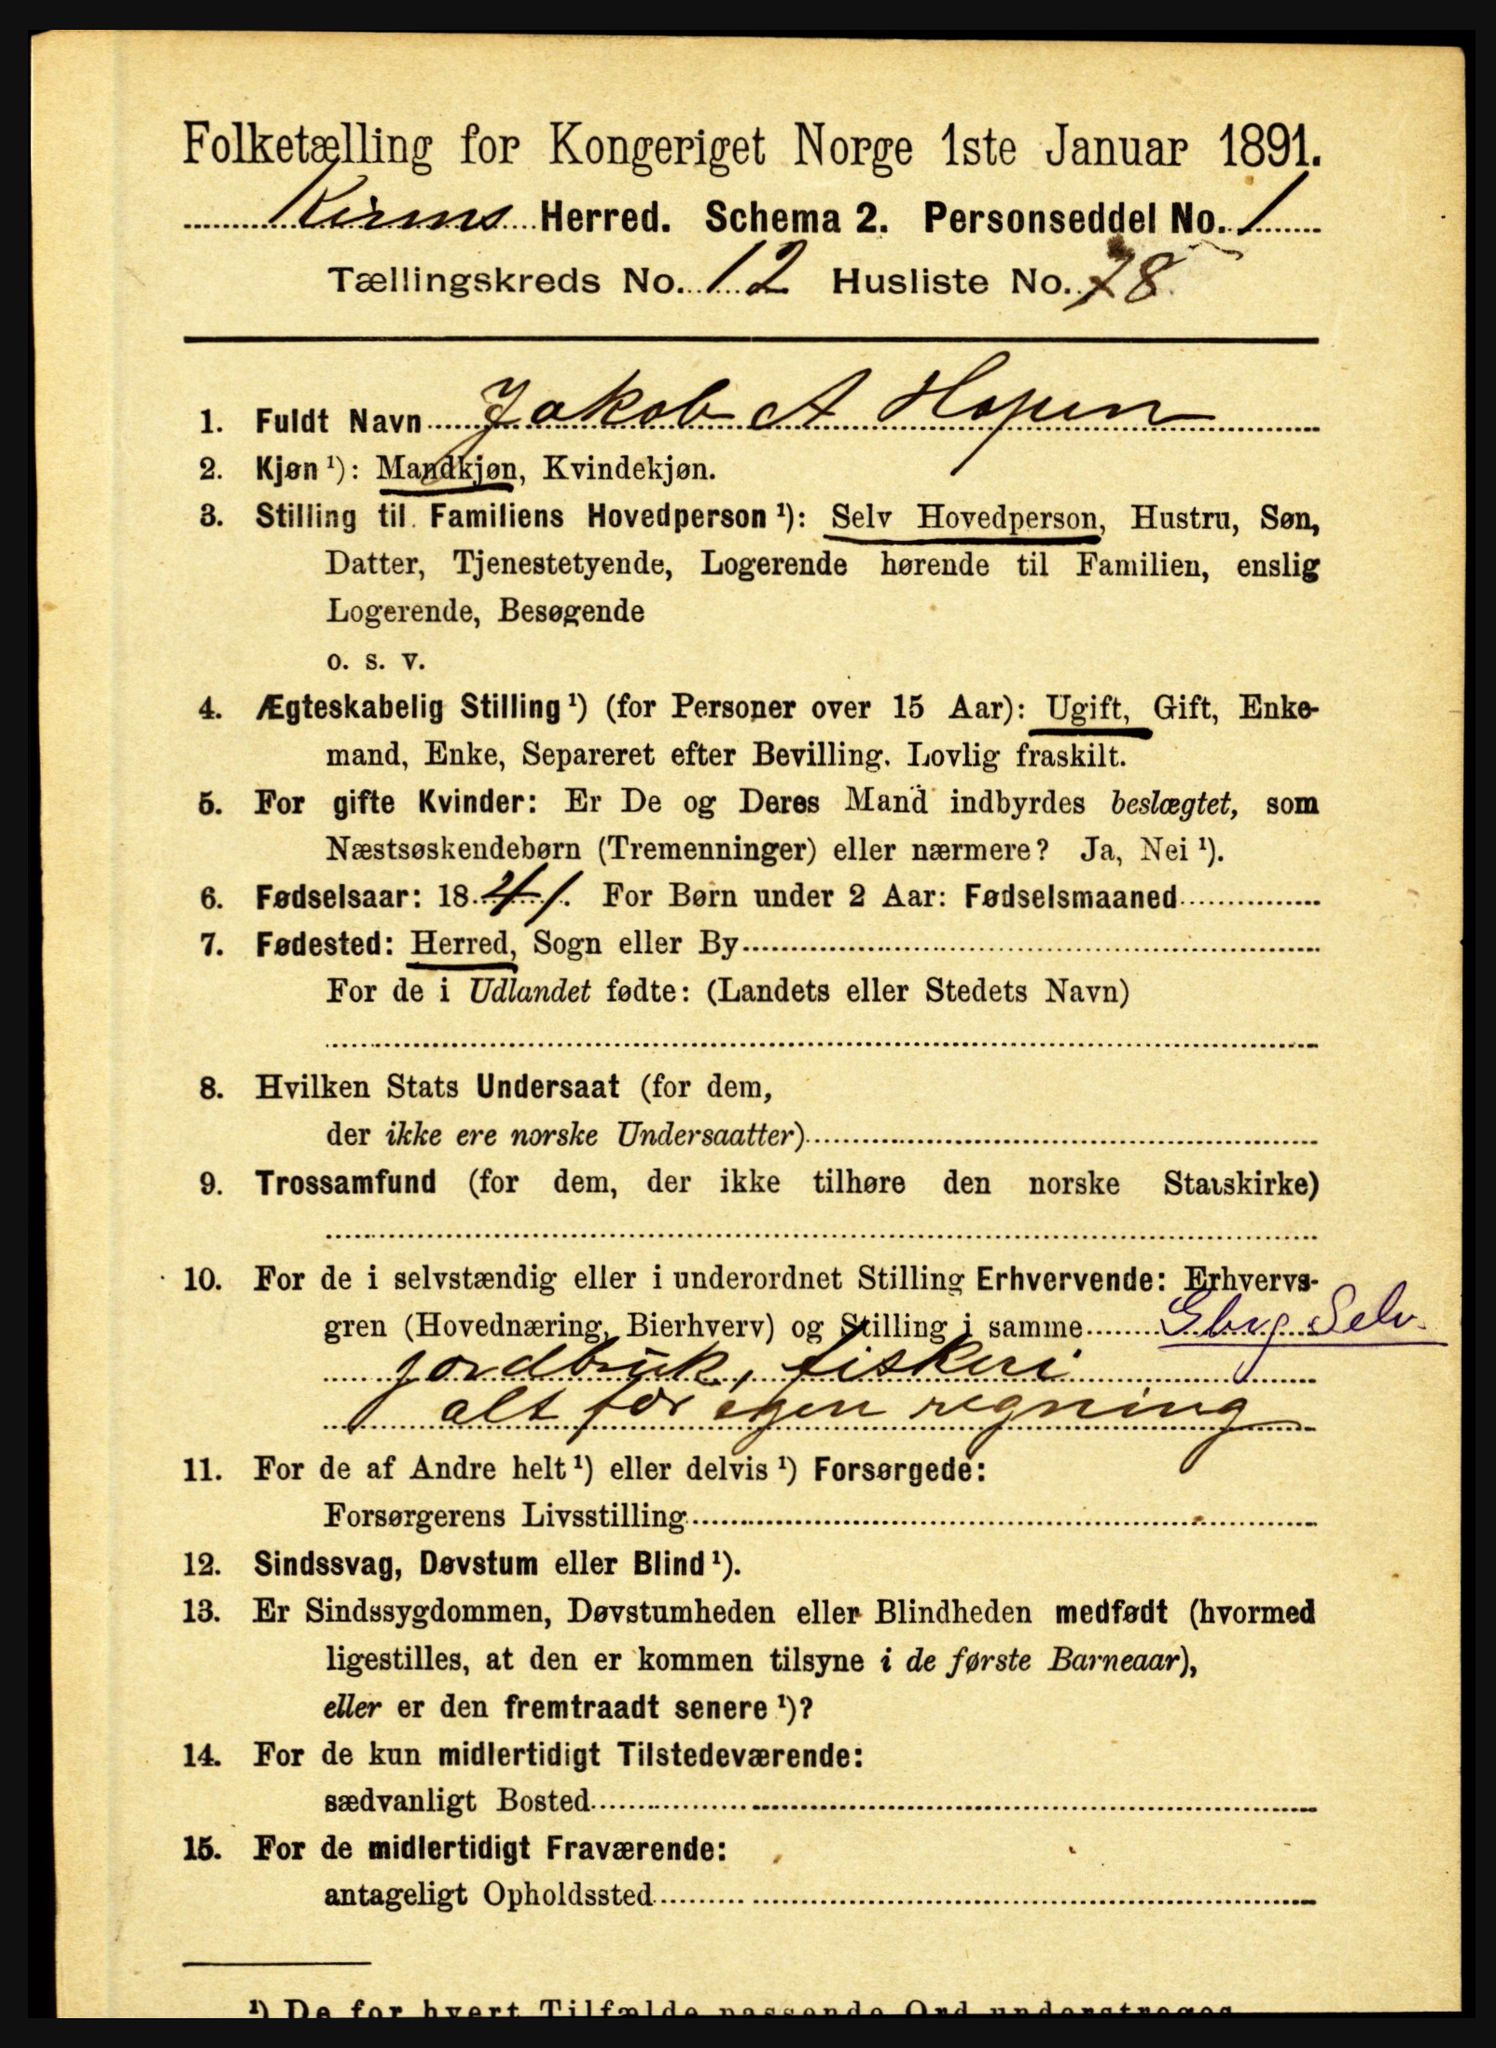 Folketælling for Kongeriget Norge 1ste Januar 1891.
Kinns Herred. Schema 2. Personseddel No. 1
Tællingskreds No. 12 Husliste No. 78
1. Fuldt Navn Jakob A Hopen
2. Kjøn ¹): Mandkjøn, Kvindekjøn.
3. Stilling til Familiens Hovedperson ¹): Selv Hovedperson, Hustru, Søn,
Datter, Tjenestetyende, Logerende hørende til Familien, enslig
Logerende, Besøgende
o. s. v.
4. Ægteskabelig Stilling ¹) (for Personer over 15 Aar): Ugift, Gift, Enke-
mand, Enke, Separeret efter Bevilling. Lovlig fraskilt.
5. For gifte Kvinder: Er De og Deres Mand indbyrdes beslægtet, som
Næstsøskendebørn (Tremenninger) eller nærmere? Ja, Nei ¹).
6. Fødselsaar: 1841. For Børn under 2 Aar: Fødselsmaaned
7. Fødested: Herred, Sogn eller By
For de i Udlandet fødte: (Landets eller Stedets Navn)
8. Hvilken Stats Undersaat (for dem,
der ikke ere norske Undersaatter)
9. Trossamfund (for dem, der ikke tilhøre den norske Statskirke)
10. For de i selvstændig eller i underordnet Stilling Erhvervende: Erhvervs-
gren (Hovednæring, Bierhverv) og Stilling i samme Gbrg Selv.
jordbruk, fiskeri
alt for egen regning
11. For de af Andre helt ¹) eller delvis ¹) Forsørgede:
Forsørgerens Livsstilling
12. Sindssvag, Døvstum eller Blind ¹).
13. Er Sindssygdommen, Døvstumheden eller Blindheden medfødt (hvormed
ligestilles, at den er kommen tilsyne i de første Barneaar),
eller er den fremtraadt senere ¹)?
14. For de kun midlertidigt Tilstedeværende:
sædvanligt Bosted
15. For de midlertidigt Fraværende:
antageligt Opholdssted
¹) De for hvert Tilfælde passende Ord understreges